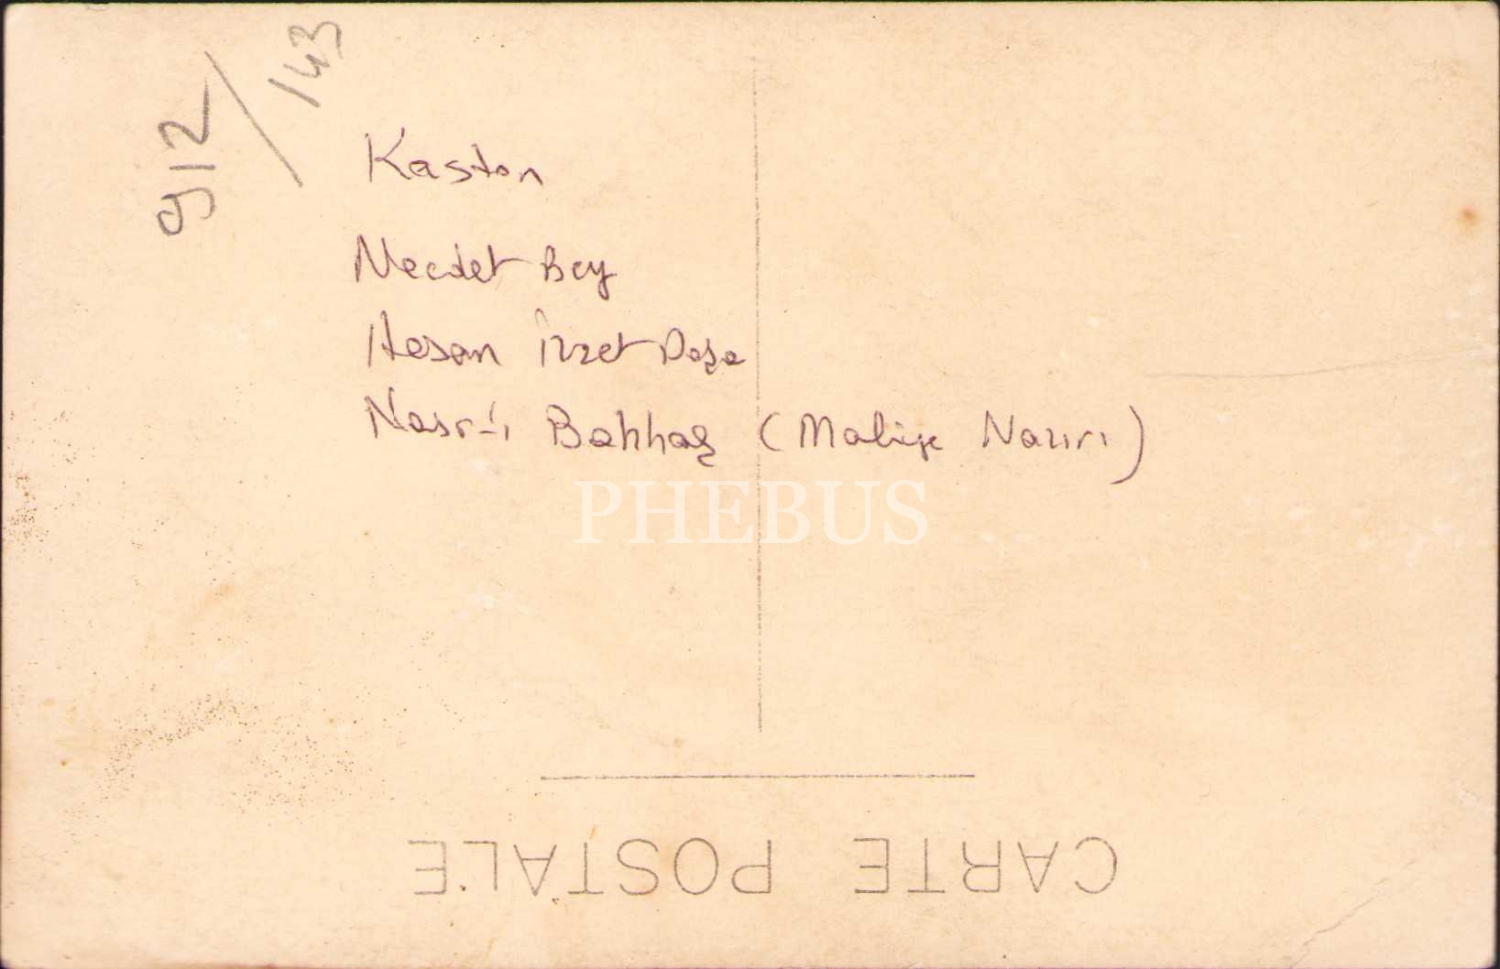 912/143
Kaston
Necdet Bey
Hasan İzzet Paşa
Nasr-ı Bahhaş (Maliye Nazırı)
PHEBUS
CARTE POSTALE